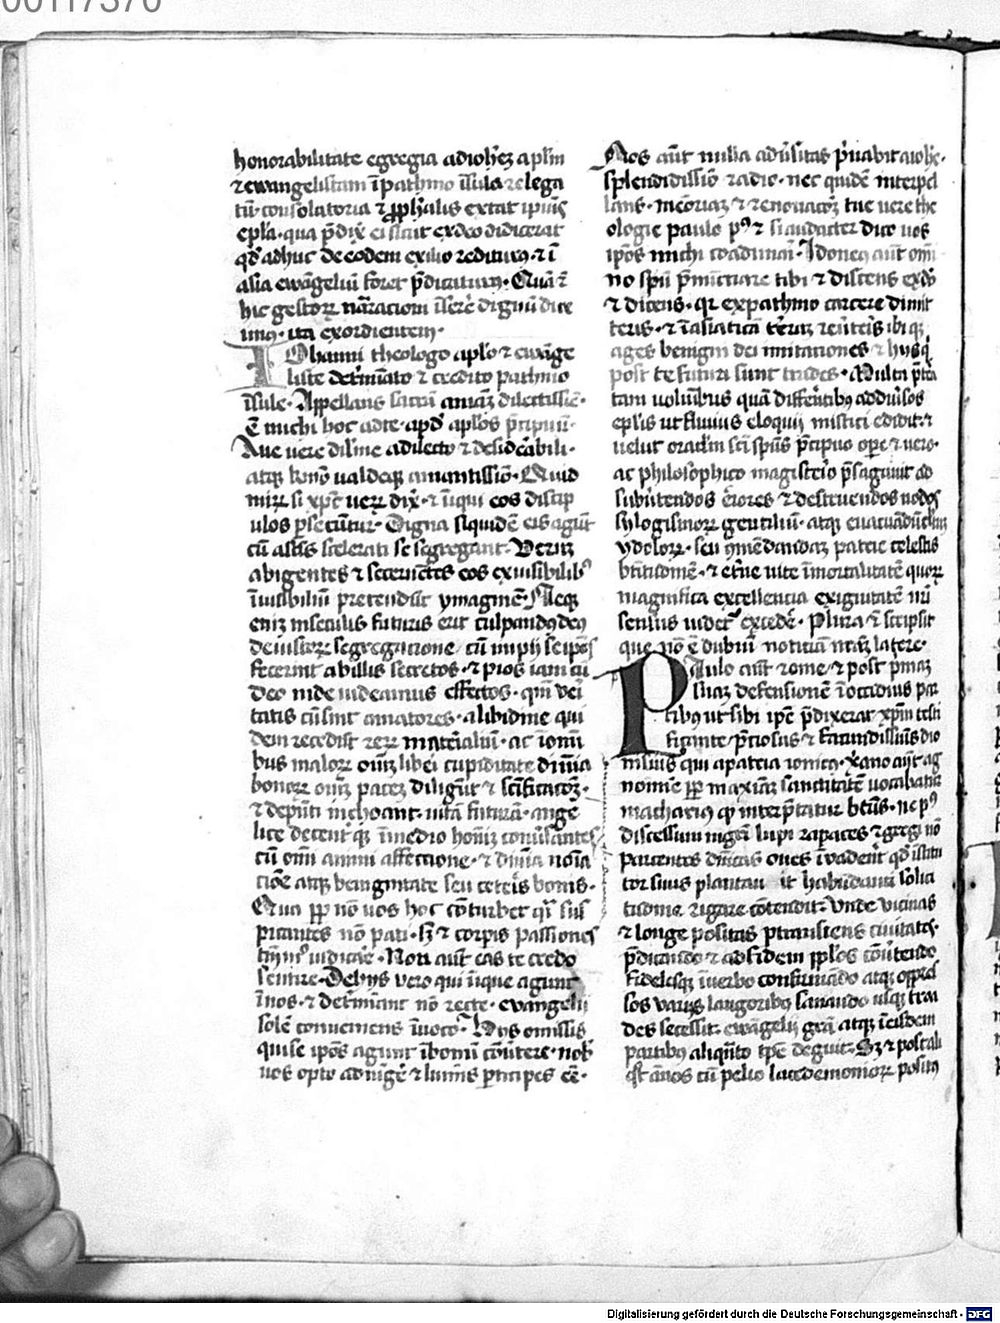 00117376
honorabilitate egregia ad ioh̄eȝ apl̄m
⁊ ewangelistam ī pathmo īsula relega
tū· consolatoria ⁊ ꝓph̄alis extat ipiꝰ
epl̄a· qua p̄dix̄ ei
qd̄ adhuc de eodem exilio rediturꝰ· ⁊ ī
asia ewāgeliū foret p̄dicaturꝰ· Quā ⁊
hic gestoꝝ nr̄acioni īserē dignū duc
imꝰ· ita exordientem·
Iohanni theologo apl̄o ⁊ ewāge
liste det̄mīato ⁊ cedito pathmo
īsule· Appellans sacrā amaȝ dilectissīe·
Ē michi hoc ad te· apd̄ apl̄os p̄cipuū·
Aue uere dil̄me a dilecto ⁊ desid̄eabili·
atqꝫ
mirꝝ si xp̄c uerꝫ dix̄· ⁊ īiqui eos discip
ulos ꝑsecūtur· Digna siquidē eis agūt
cū astis scelerati se segregant· Verūȝ
abigentes ⁊ secernētes eos ex uisibilibꝰ
īuisibiliū pretendūt ymaginē· Neqꝫ
enī in seculis futuris erit culpandꝰ deꝰ
de iustoꝝ segregacione· cū impij se ipōs
fecerint ab illis secretos· ⁊ pios iam cū
deo inde uideamus effectos· qm̄ uei
tatis cū sint amatores· a libidine qui
dem recedūt reꝝ mat̄ialiū· ac ī om̄i
bus maloꝝ om̄iȝ liberi cupiditate diuīa
honoꝝ om̄iȝ patreȝ diligūt ⁊ sc̄ificacoȝ·
⁊ de pn̄ti inchoant· uitā futurā· ange
lice decent̄ qꝫ ī medio hom̄iȝ conuīsantes
cū omī animi affectione· ⁊ diuīa noīa
cōe atqꝫ benignitate seu ceteīs bonis·
Qua ꝓp̄ nō uos hoc cōturbet qr̄ sus
picantes nō pati· sȝ ⁊ corpis passiones
tm̄m̄ iudicāe· Non aūt eas te credo
sentire· De hijs vero qui īique agunt
ī uos· ⁊ det̄mīant nō recte· ewangelij
solē convemens ī uoco· hijs omissis
que se ipōs agunt ī bonū cōūtere· nob̄
uos opto ad iūgē ⁊ lumīs ꝑticipes eē·
Nos aūt nulla adūsitas p̄uabit a ioh̄e·
splendidissīo radio· nec quidē interpel
lans· meōriaȝ ⁊ renouacoȝ tue uere the
ologie paulo pꝰ ⁊ si audacter dico uos
ipōs michi coadunaī· Idoneꝰ aūt om̄i
no sp̄u p̄nūciare tibi ⁊ discens ex dō
⁊ dicens· qr ex pathmo carcere dimit
teris· ⁊ ī asiaticā t̄raȝ reūteīs ibi qꝫ
ages benigni dei imitationes ⁊ hijs q̄
post te futuri sunt trades· Multa pīa
tam uolūībus quā diffētibꝰ ad diūsos
epl̄is ut fluuius eloquij mistici edidit· ⁊
uelut oracl̄m sc̄i sp̄us p̄cipuo ope ⁊ uero·
ac philosophico magist̄io p̄sagiuit ad
subūtendos ēiores ⁊ destruendos nodos
sylogismoꝝ gentiliū· atqꝫ euacuādū cltuȝ
ydoloꝝ· seu 9mēdandaȝ patrie celestis
btītudinē· ⁊ et̄ne uite īmortalitatē quoꝝ
magnifica excellencia exiguitatē nr̄i
sensus uidet̄ excedē· Plura ēi scripsit
que nō ē dubiū noticiā nr̄aȝ latere·
Paulo aūt rome ⁊ post p̄maȝ
suaȝ defensionē ī occiduis par
tibꝰ ut sibi ipē p̄dixerat xp̄m testi
ficante p̄ciosus ⁊ facundissimꝰ dio
nisius qui a patria ionicꝰ· xp̄iano aūt ag
nomīe ꝓp̄ maxiāȝ sanctitatē uocabatur
machariꝰ qꝫ interp̄tatur btūs· ne pꝰ
discessum nigrū lupi rapaces ⁊ gregi nō
parcentes dn̄icas oues īvadent qd̄ īstitu
tor suus plantau it habundanti solici
tudine rigare cōtendit· Vnde vicinas
⁊ longe positas ꝑtransiens ciuitates·
p̄dicando ⁊ ad fidem ꝓp̄los cōūtendo
fidelesqꝫ ī uerbo confirmādo atqꝫ oppres
sos variis langoribꝰ sanando usqꝫ trai
des secessit· ewāgelij grā atqꝫ ī eisdem
partibꝰ aliqn̄to tp̄e deguit· Sȝ ⁊ post ali
qt̄ ānos cū pelio lacedemonioꝝ positꝰ
Digitalisierung gefördert durch die Deutsche Forschungsgemeinschaft - DFG